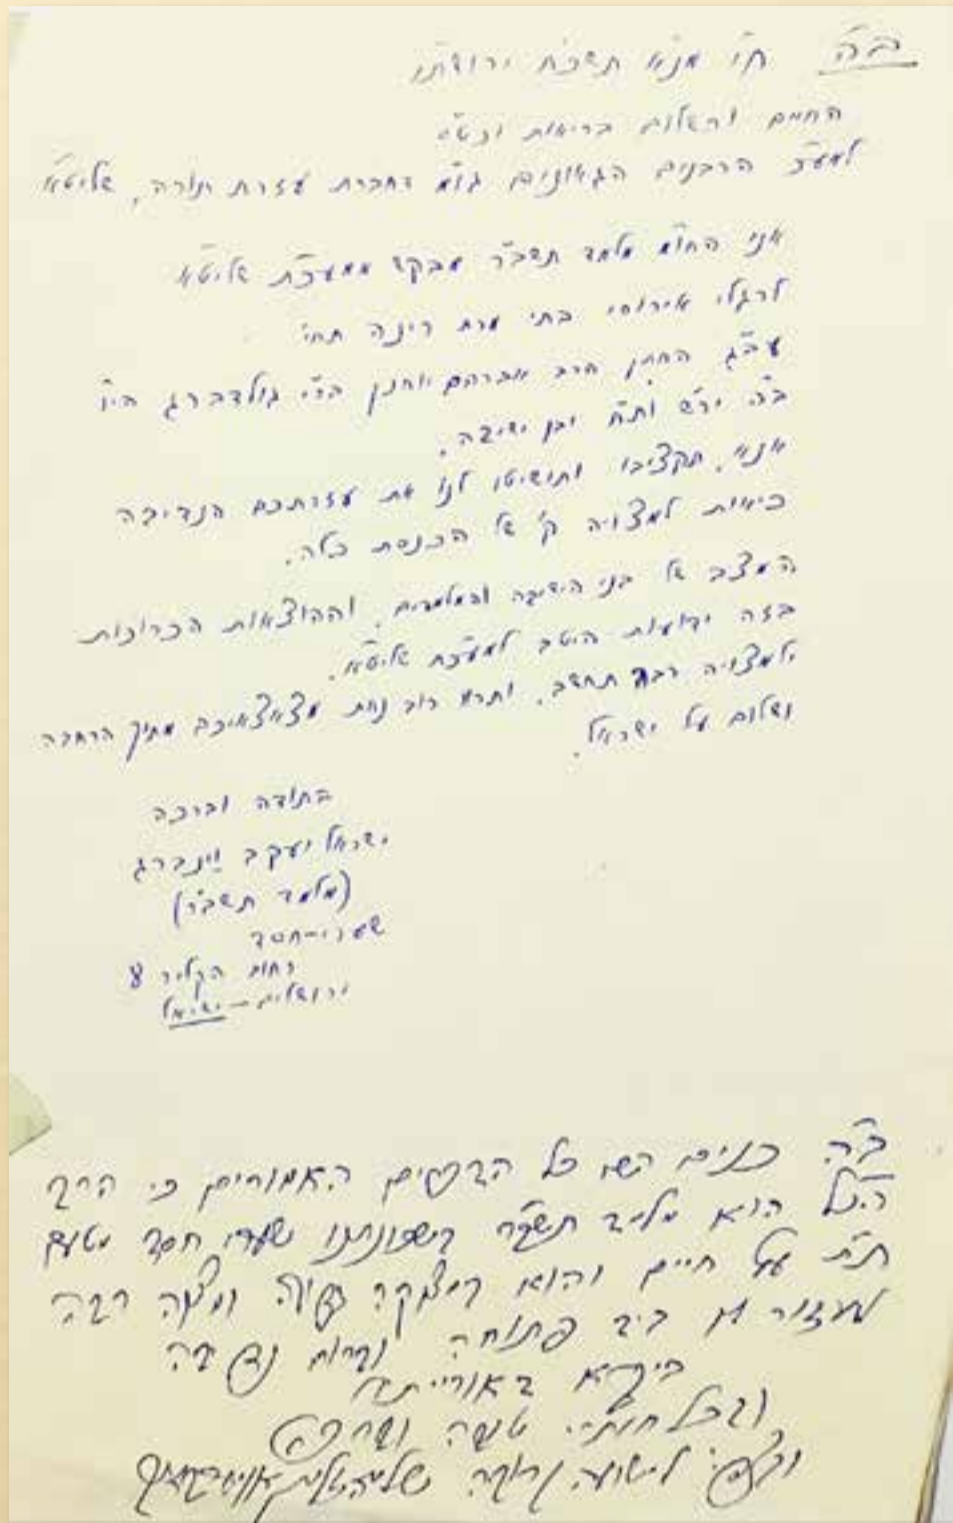 ב"ה ח"י מנ"א תשכ"ח ירושת"ו
החיים והשלום בריאות וכט"ס
למע"כ הרבנים הגאונים דחברת עזרת תורה, שליט"א
אני החו"מ מלמד תשב"ר מבקש ממעכ"ת שליט"א
לרגלי אירוסי בתי מרת רינה תחי'
עב"ג החתן הרב אברהם יוחנן גולדברג הי"ו
ב"ה יר"ש ות"ח ובן ישיבה.
אנא, תקציבו ותושיטו לנו את עזרתכם הנדיבה
כיאות למצויה ק' של הכנסת כלה.
המצב של בני הישיבה והמלמדים, וההוצאות הכרוכות
בזה ידועות היטב למעכ"ת שליט"א.
ולמצויה רבה תחשב, ותרוו רוב נחת מצאצאיכם מתוך הרחבה
ושלום על ישראל.
בתודה וברכה
ישראל יעקב וינברג
(מלמד תשב"ר)
שערי-חסד
רחוב הקליר
ירושלים - ישראל
ב"ה כנים כל הדברים האמורים כי הרב
הנ"ל הוא מלמד תשב"ר בשכונתנו שערי חסד מטעם
ת"ת עץ חיים והוא ומצוה רבה
לעזור לו ביד פתוחה וברוח נדיבה
ביקרא דאורייתא
ובכל חותמי ברכה
ומצפה לישועה קרובה